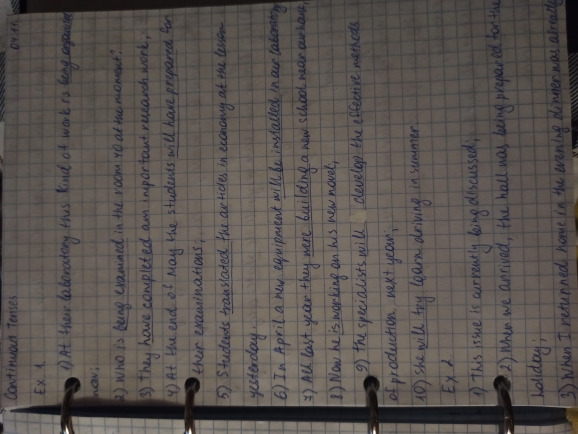 Continuous Tenses 04.11.
Ex. 1.
1) At their laboratory this kind of work is being organized
now;
2) Who is being examined in the room 40 at the moment?
3) They have completed an important research work;
4) At the end of May the students will have prepared for
their examinations;
5) Students translated the articles in economy at the lesson
yesterday.
6) In April a new equipment will be installed in our laboratory
7) All last year they were building a new school near our house;
8) Now he is working on his new novel;
9) The specialists will develop the effective methods
of production next year;
10) She will try learn driving in summer.
Ex. 2.
1) This issue is currently being discussed;
2) When we arrived, the hall was being prepared for the
holiday;
3) When I returned home in the evening dinner was already